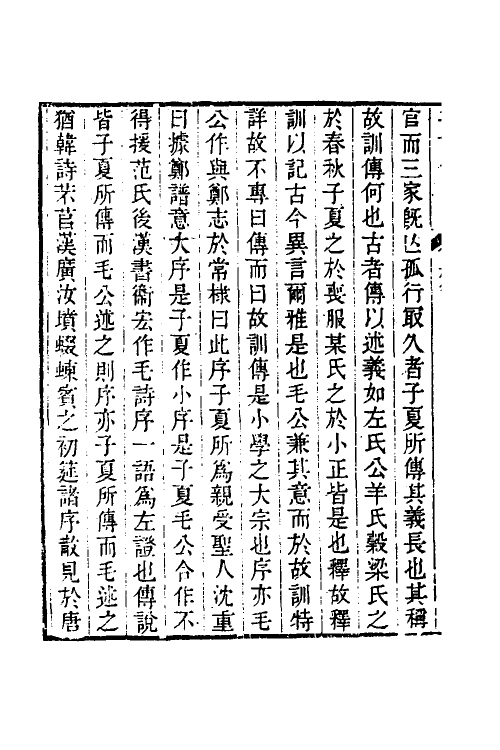 官而三家既亾孤行最久者子夏所傳其義長也其稱
故訓傳何也古者傳以述義如左氏公羊氏穀梁氏之
於春秋子夏之於喪服某氏之於小正皆是也釋故釋
訓以記古今異言爾雅是也毛公兼其意而於故訓特
詳故不專曰傳而曰故訓傳是小學之大宗也序亦毛
公作與鄭志於常棣曰此序子夏所爲親受聖人沈重
曰據鄭譜意大序是子夏作小序是子夏毛公合作不
得援范氏後漢書衞宏作毛詩序一語爲左證也傳說
皆子夏所傳而毛公述之則序亦子夏所傳而毛述之
猶韓詩芣苢漢廣汝墳蝃蝀賓之初筵諸序散見於唐